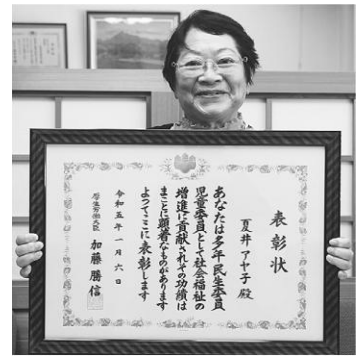 表彰状
夏井アヤ子殿
あなたは多年民生委員
児童委員として社会福祉の
増進に貢献されその功績は
まことに顕著なものがあります
よってここに表彰します
令和五年一月六日
厚生労働大臣 加藤勝信